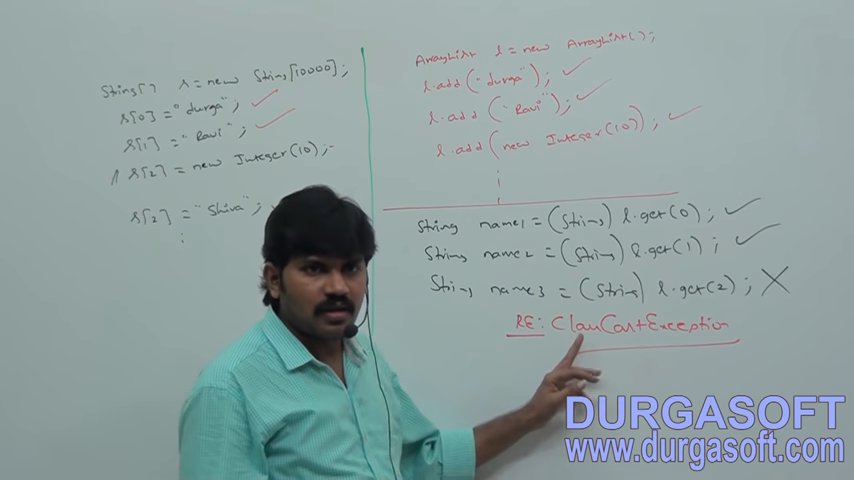 String[] s = new String[10000];
s[0] = "durga";
s[1] = "Ravi";
s[2] = new Integer(10);
s[2] = "Shiva";
ArrayList l = new ArrayList();
l.add("durga");
l.add("Ravi");
l.add(new Integer(10));
String name1 = (String) l.get(0);
String name2 = (String) l.get(1);
String name3 = (String) l.get(2);
RE: ClassCastException
DURGASOFT
www.durgasoft.com